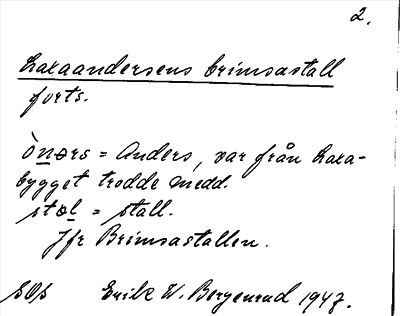 2.
Laxaandersens brimsastall
forts.
ònərs = Anders, var från Laxa-
bygget trodde medd.
stal = stall.
Jfr Brimsastallen.
Erik W. Bergenrud 1947.